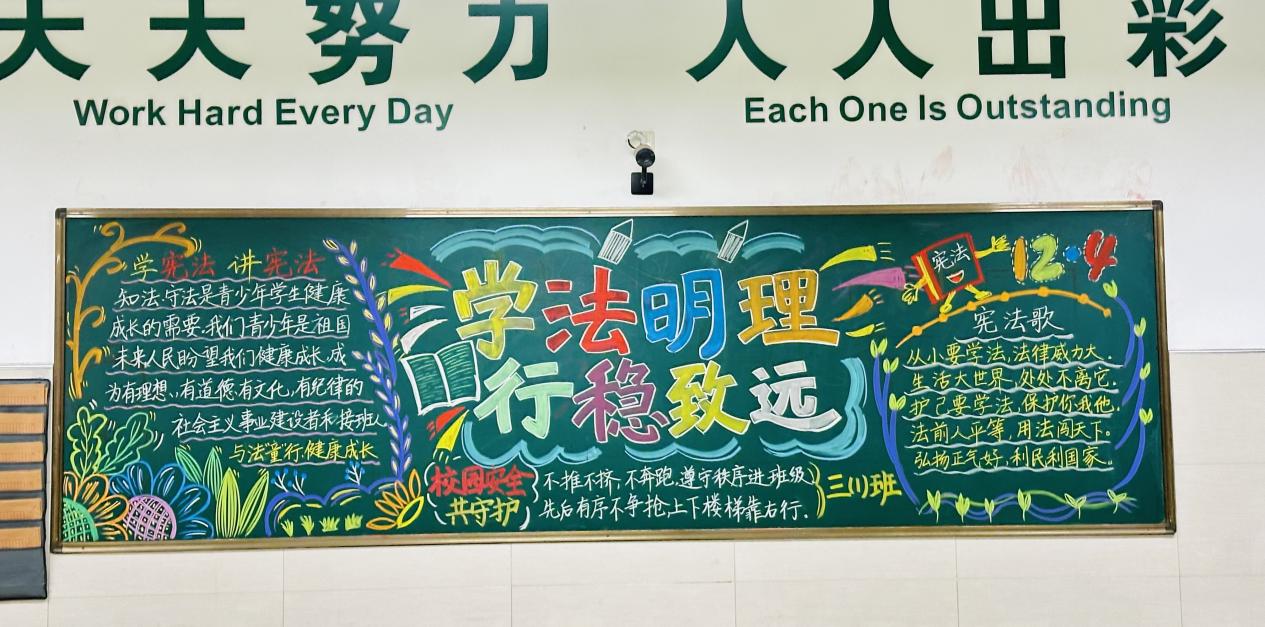 天天努力 人人出彩
Work Hard Every Day
Each One Is Outstanding
学宪法 讲宪法
知法、守法是青少年学生健康
成长的需要。我们青少年是祖国
未来人民盼望我们健康成长,成
为有理想、有道德,有文化,有纪律的
社会主义事业建设者和接班人
与法"童"行,健康成长
学法明理
行稳致远
校园安全
共守护
不推不挤,不奔跑,遵守秩序进班级
先后有序不争抢,上下楼梯靠右行.
三川班
宪法
12·4
宪法歌
从小要学法,法律威力大.
生活大世界,处处不离它.
护己要学法,保护你我他.
法前人平等,用法闯天下。
弘扬正气好,利民利国家.